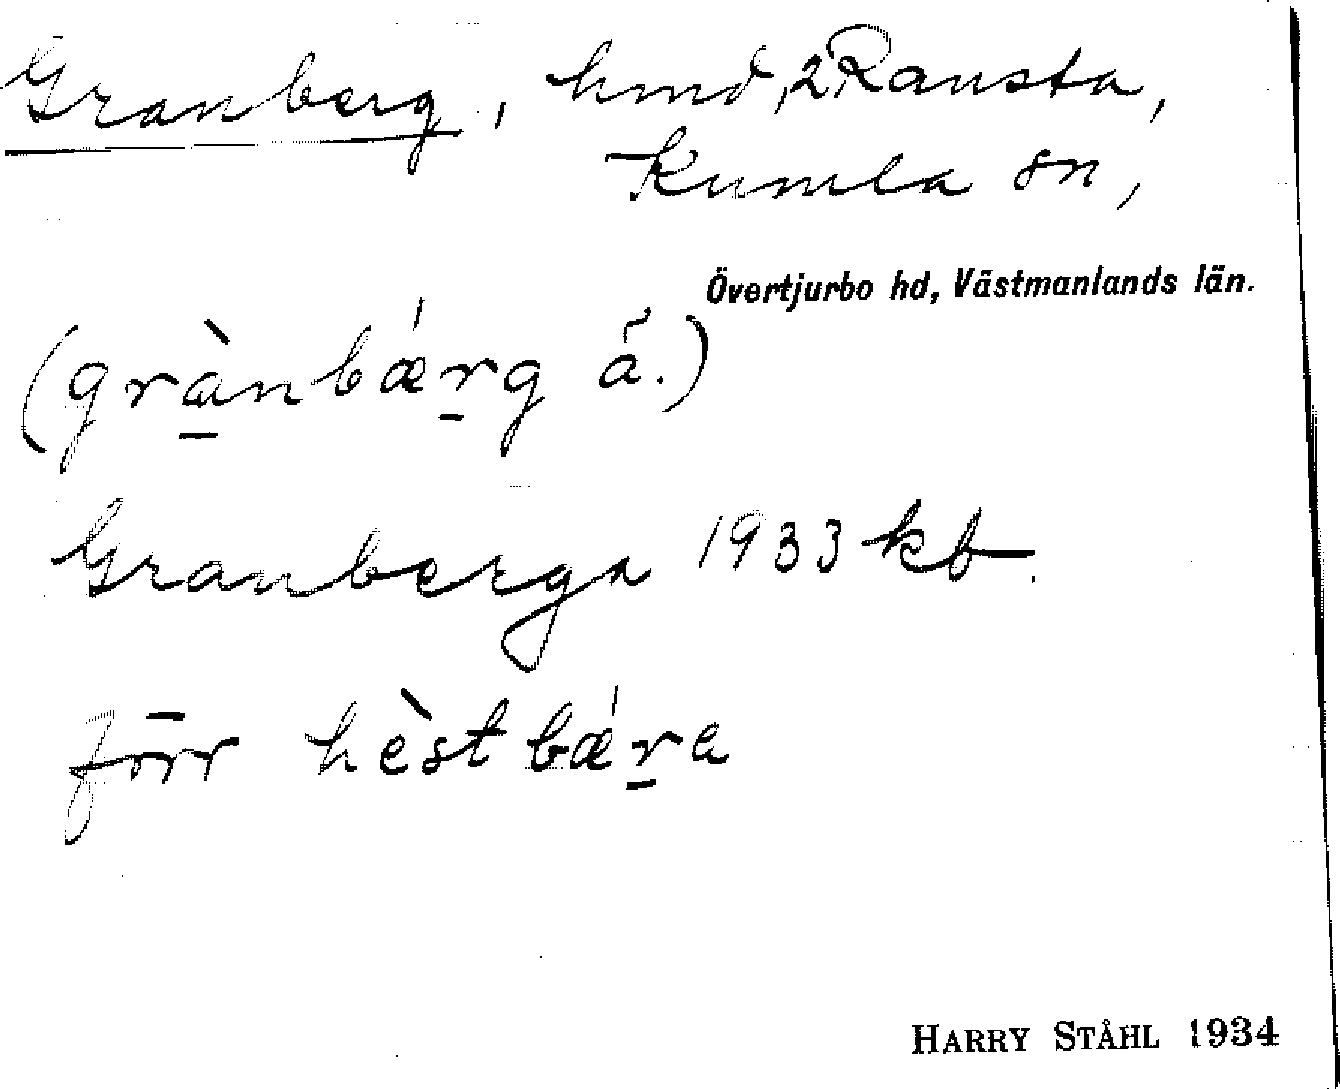 Granberg, hmd, 2 Ransta,
Kumla sn,
Övertjurbo hd, Västmanlands län.
(grànbǽrg ã.)
Granberga 1933 kb.
förr hèstbǽra
HARRY STÅHL 1934